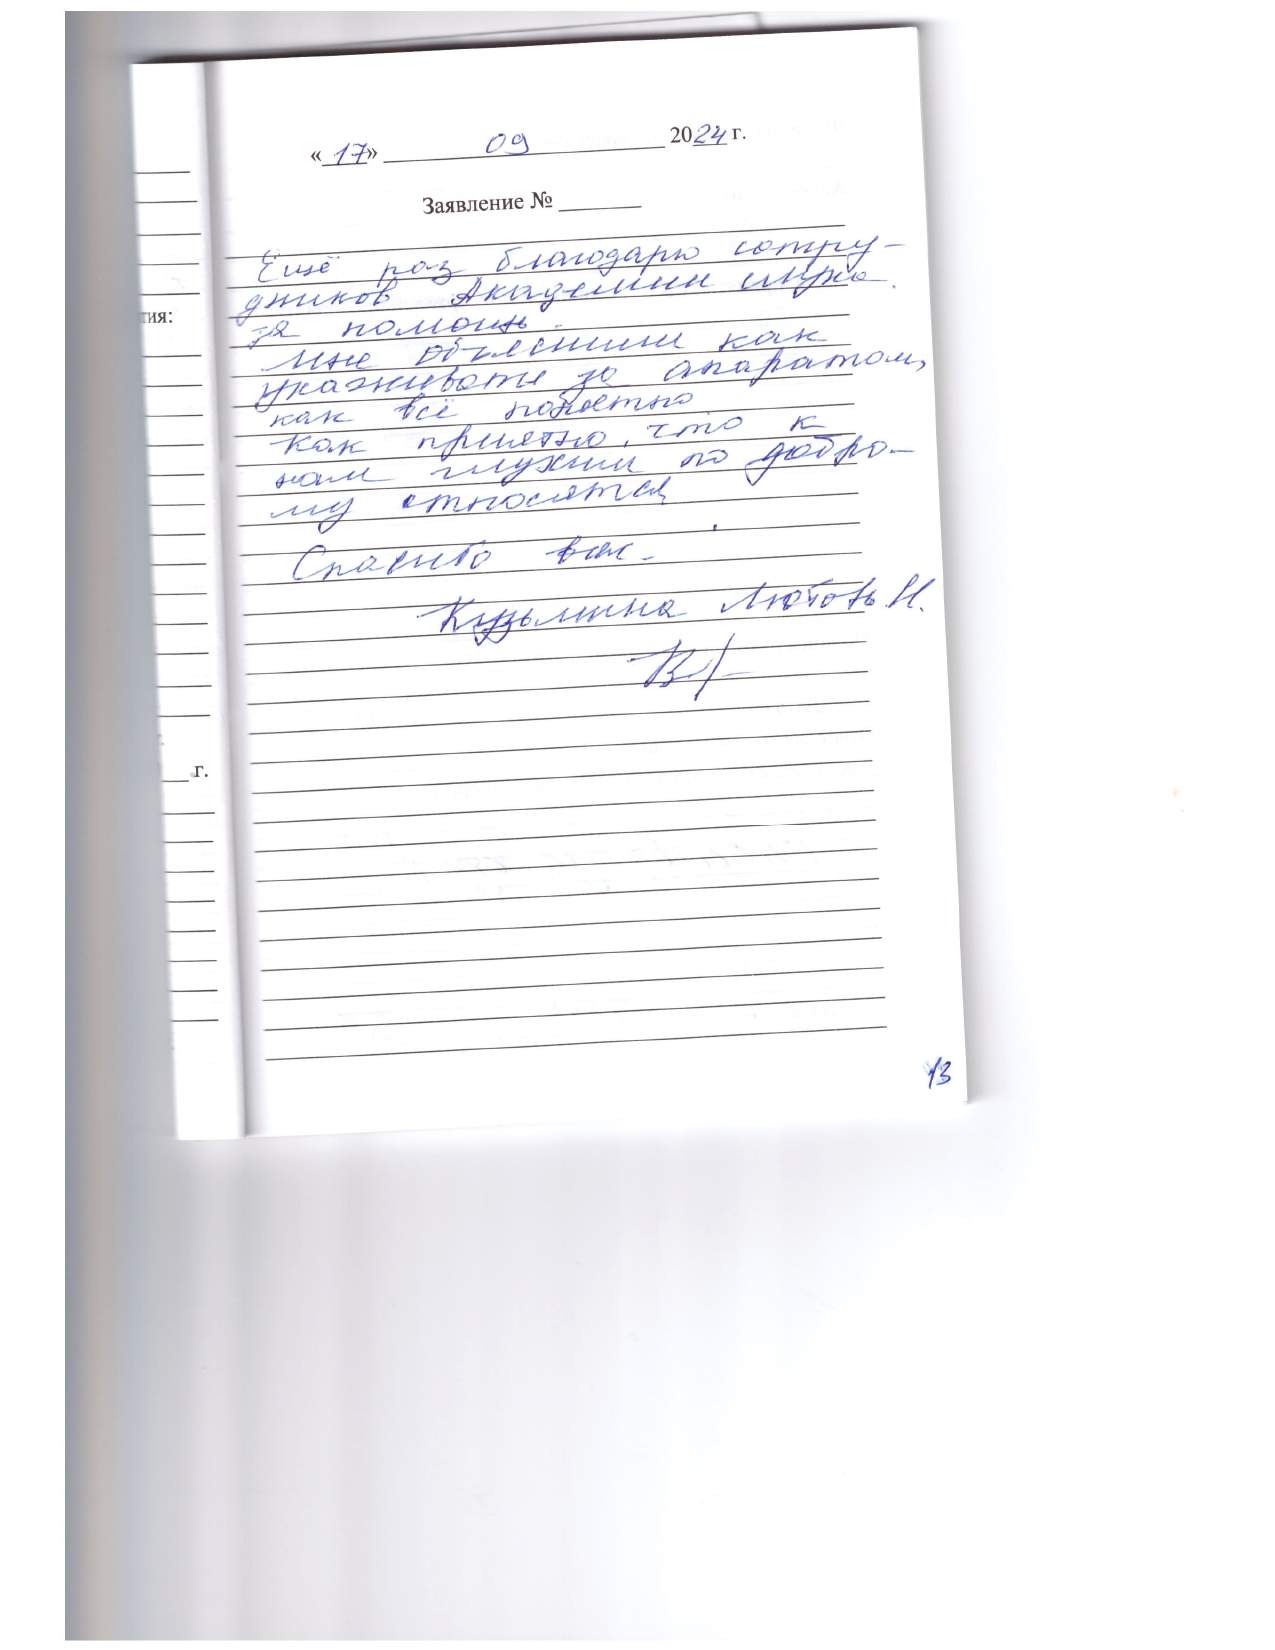 «17» 09 2024 г.
Заявление № ______
Ещё раз благодарю сотру-
дников Академии слуха
за помощь.
Мне объяснили как
ухаживать за апаратом,
как всё понятно
Как приятно, что к
нам глухим по добро-
му относятся
Спасибо вам.
Кузьмина Любовь И.
тия:
г.
13